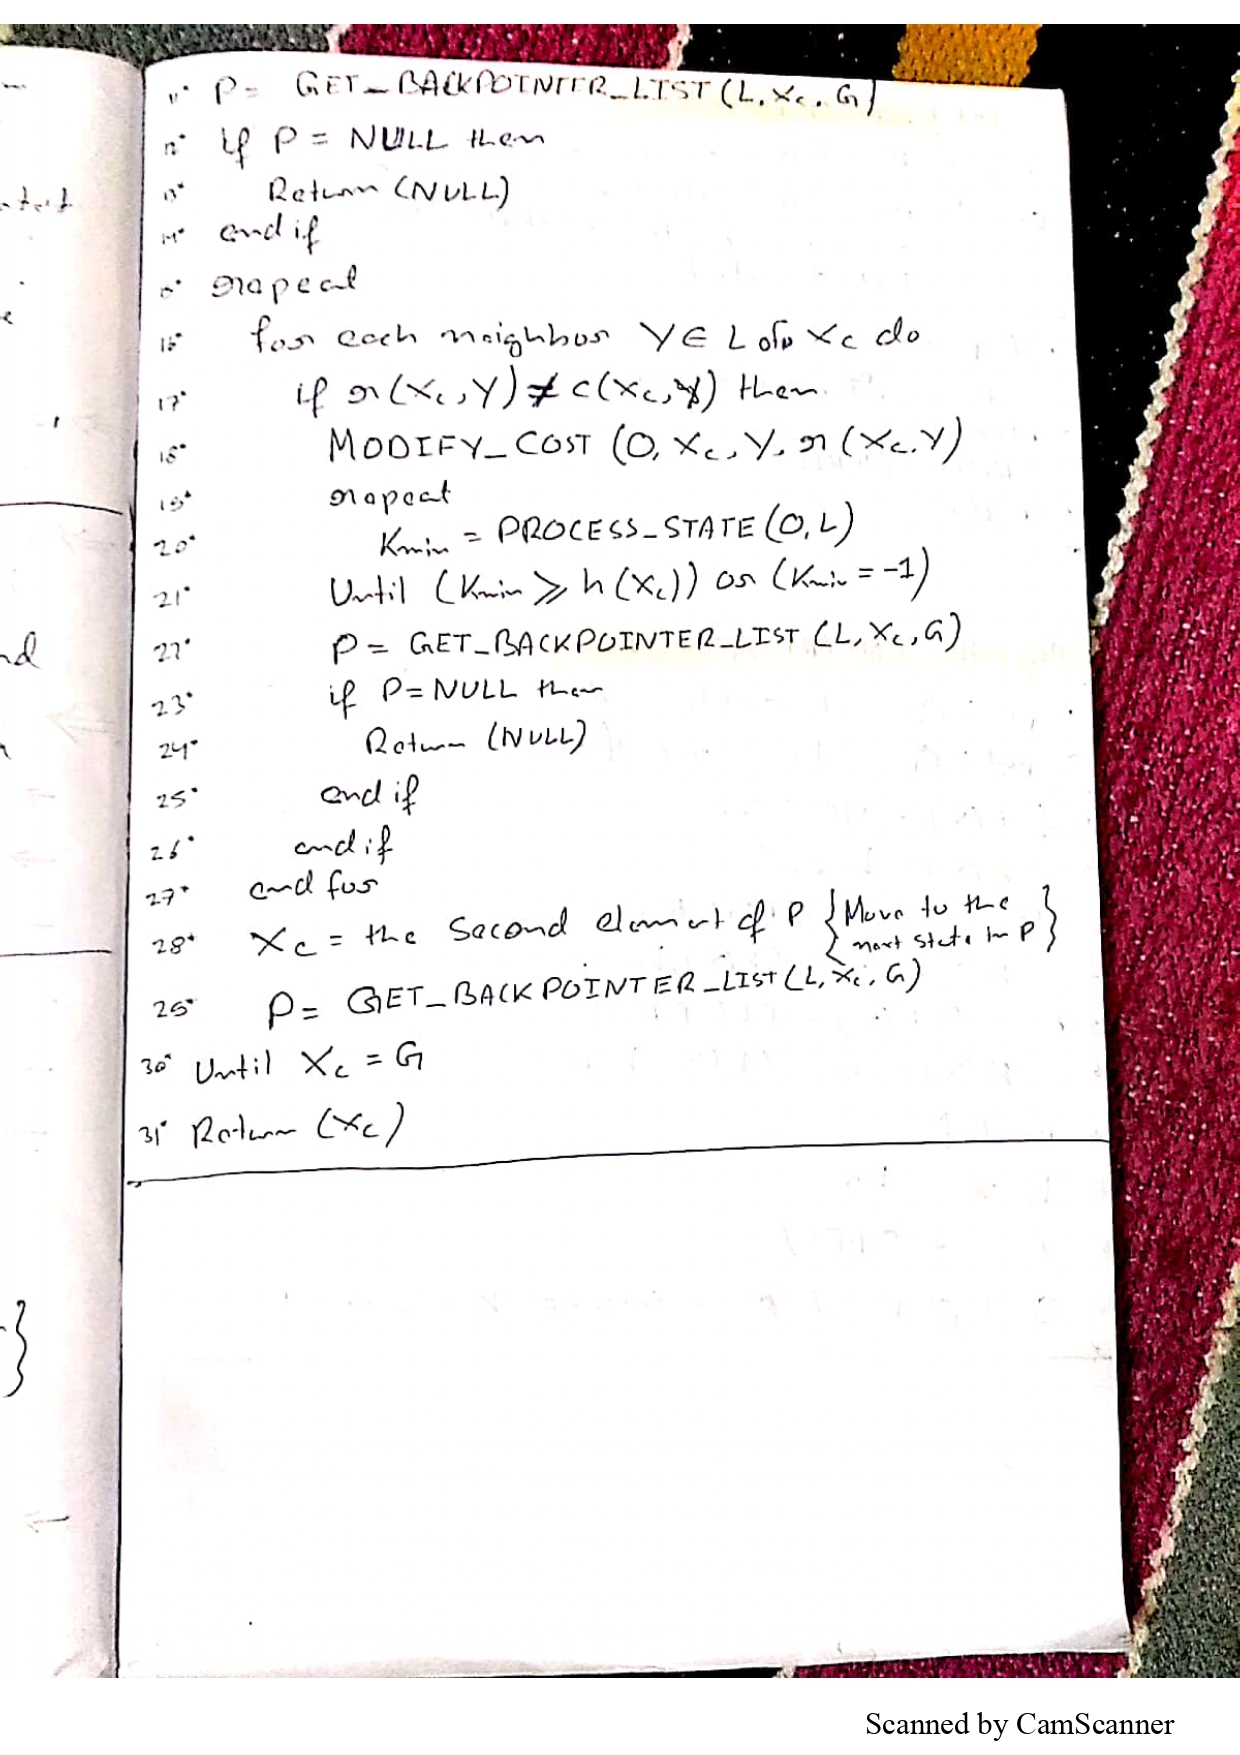 11. P = GET_BACKPOINTER_LIST (L, Xc, G)
12. if P = NULL then
13. Return (NULL)
14. end if
15. repeat
16. for each neighbor Y ∈ L of Xc do
17. if r(Xc, Y) ≠ c(Xc, Y) then
18. MODIFY_COST (O, Xc, Y, r(Xc, Y)
19. repeat
20. Kmin = PROCESS_STATE (O, L)
21. Until (Kmin ≥ h(Xc)) or (Kmin = -1)
22. P = GET_BACKPOINTER_LIST (L, Xc, G)
23. if P = NULL then
24. Return (NULL)
25. end if
26. end if
27. end for
28. Xc = the Second element of P {Move to the next state in P}
29. P = GET_BACKPOINTER_LIST (L, Xc, G)
30. Until Xc = G
31. Return (Xc)
Scanned by CamScanner